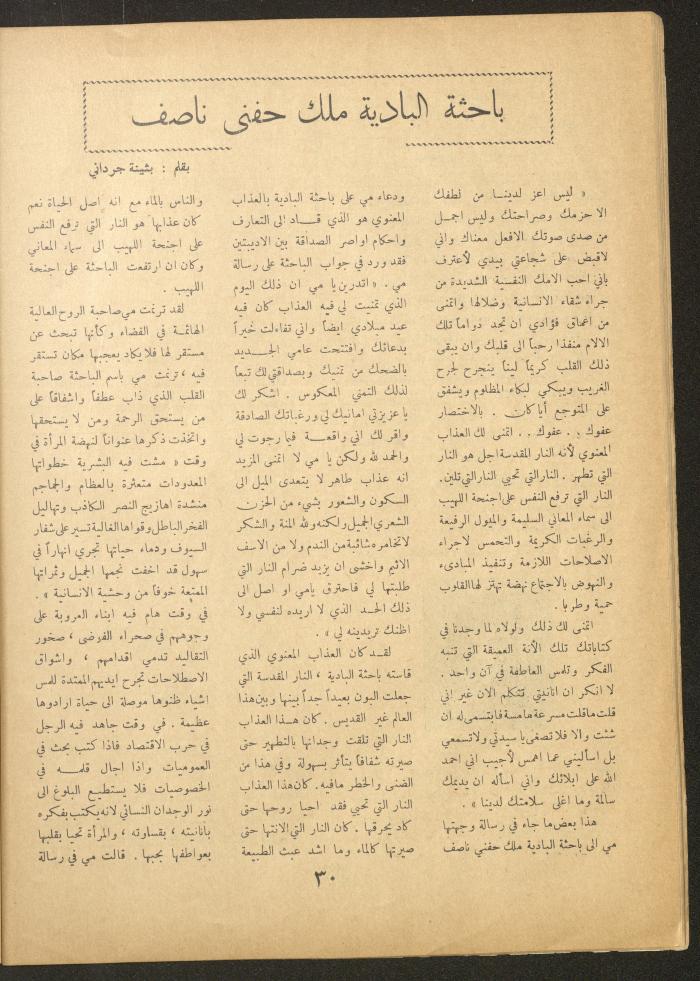 باحثة البادية ملك حفنى ناصف
بقلم : بثينة جرداني
« ليس اعز لدينا من لطفك
الا حزمك وصراحتك وليس اجمل
من صدى صوتك الافعل معناك واني
لاقبض على شجاعتي بيدي لأعترف
باني احب الامك النفسية الشديدة من
جراء شقاء الانسانية وضلالها واتمنى
من اعماق فؤادي ان تجد دواماً تلك
الالام منفذاً رحباً الى قلبك وان يبقى
ذلك القلب كريماً ليناً ينجرح لجرح
الغريب ويبكي لبكاء المظلوم ويشفق
على المتوجع أيا كان . بالاختصار
عفوك . . عفوك . . اتمنى لك العذاب
المعنوي لأنه النار المقدسة اجل هو النار
التي تطهر . النار التي تحيي النار التي تلين .
النار التي ترفع النفس على اجنحة اللهيب
الى سماء المعاني السليمة والميول الرفيعة
والرغبات الكريمة والتحمس لاجراء
الاصلاحات اللازمة وتنفيذ المبادىء
والنهوض بالاجتماع نهضة تهتز لها القلوب
حمية وطربا .
اتمنى لك ذلك ولولاه لما وجدنا في
كتاباتك تلك الأنة العميقة التي تنبه
الفكر وتلمس العاطفة في آن واحد .
لا انكر ان انانيتي تتكلم الان غير اني
قلت ماقلت مسرعة هامسة فابتسمي له ان
شئت والا فلا تصغي يا سيدتي ولا تسمعي
بل اسأليني عما اهمس لأجيب اني احمد
الله على ابلائك واني اسأله ان يديمك
سالمة وما اغلى سلامتك لدينا » .
هذا بعض ما جاء في رسالة وجهتها
مي الى باحثة البادية ملك حفني ناصف
ودعاء مي على باحثة البادية بالعذاب
المعنوي هو الذي قاد الى التعارف
واحكام اواصر الصداقة بين الاديبتين
فقد ورد في جواب الباحثة على رسالة
مي . « اتدرين يا مي ان ذلك اليوم
الذي تمنيت لي فيه العذاب كان فيه
عيد ميلادي ايضاً واني تفاءلت خيراً
بدعائك وافتتحت عامي الجديد
بالضحك من تمنيك وبصداقتي لك تبعاً
لذلك التمني المعكوس . اشكر لك
يا عزيزتي امانيك لي ورغباتك الصادقة
واقر لك اني واقعة فيما رجوت لي
والحمد لله ولكن يا مي لا اتمنى المزيد
انه عذاب طاهر لا يتعدى الميل الى
السكون والشعور بشيء من الحزن
الشعري الجميل ولكنه ولله المنة والشكر
لا تخامره شائبة من الندم ولا من الاسف
الاثيم واخشى ان يزيد ضرام النار التي
طلبتها لي فاحترق يامي او اصل الى
ذلك الحد الذي لا اريده لنفسي ولا
اظنك تريدينه لي » .
لقد كان العذاب المعنوي الذي
قاسته باحثة البادية ، النار المقدسة التي
جعلت البون بعيداً جداً بينها وبين هذا
العالم غير القديس . كان هذا العذاب
النار التي تلقت وجدانها بالتطهير حتى
صيرته شفافاً يتأثر بسهولة وفي هذا من
الضنى والخطر مافيه . كان هذا العذاب
النار التي تحيي فقد احيا روحها حتى
كاد يحرقها . كان النار التي الانتها حتى
صيرتها كالماء وما اشد عبث الطبيعة
والناس بالماء مع انه اصل الحياة نعم
كان عذابها هو النار التي ترفع النفس
على اجنحة اللهيب الى سماء المعاني
وكان ان ارتفعت الباحثة على اجنحة
اللهيب .
لقد ترنمت مي صاحبة الروح العالية
الهائمة في الفضاء وكأنها تبحث عن
مستقر لها فلا يكاد يعجبها مكان تستقر
فيه ، ترنمت مي باسم الباحثة صاحبة
القلب الذي ذاب عطفاً واشفاقاً على
من يستحق الرحمة ومن لا يستحقها
واتخذت ذكرها عنواناً لنهضة المرأة في
وقت « مشت فيه البشرية خطواتها
المعدودات متعثرة بالعظام والجماجم
منشدة اهازيج النصر الكاذب وتهاليل
الفخر الباطل وقواها الغالية تسير على شفار
السيوف ودماء حياتها تجري انهاراً في
سهول قد اخفت نجمها الجميل وثمراتها
الممتعة خوفاً من وحشية الانسانية » .
في وقت هام فيه ابناء العروبة على
وجوههم في صحراء الفوضى ، صخور
التقاليد تدمي اقدامهم ، واشواق
الاصطلاحات تجرح ايديهم الممتدة للمس
اشياء ظنوها موصلة الى حياة ارادوها
عظيمة . في وقت جاهد فيه الرجل
في حرب الاقتصاد فاذا كتب بحث في
العموميات واذا اجال قلمه في
الخصوصيات فلا يستطيع البلوغ الى
نور الوجدان النسائي لانه يكتب بفكره
بانانيته ، بقساوته ، والمرأة تحيا بقلبها
بعواطفها بحبها . قالت مي في رسالة
٣٠